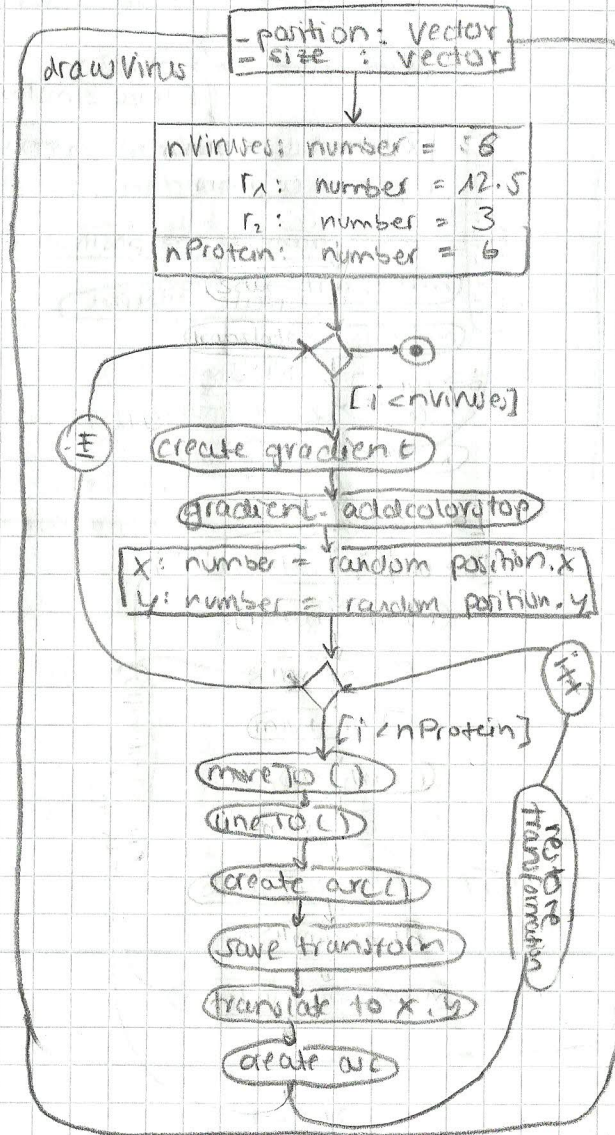 - position: Vector
- size : vector
drawVirus
nViruses: number = 8
r₁: number = 12.5
r₂: number = 3
nProtein: number = 6
[i < nViruses]
create gradient
gradient. addcolorstop
x: number = random position.x
y: number = random position.y
i++
[i < nProtein]
moveTo ()
lineTo ()
create arc()
restore
transformation
save transform
translate to x, y
create arc